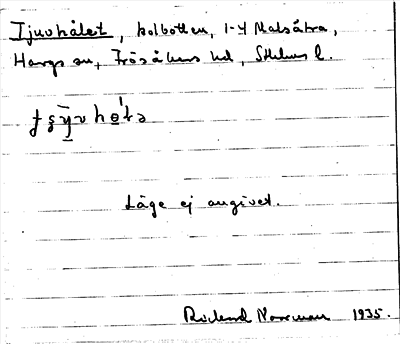 Tjuvhålet, kolbotten, 1-4 Malsätra,
Hargs sn, Frösåkers hd, Sthlms l.
Läge ej angivet.
Rickard Norrman 1935.